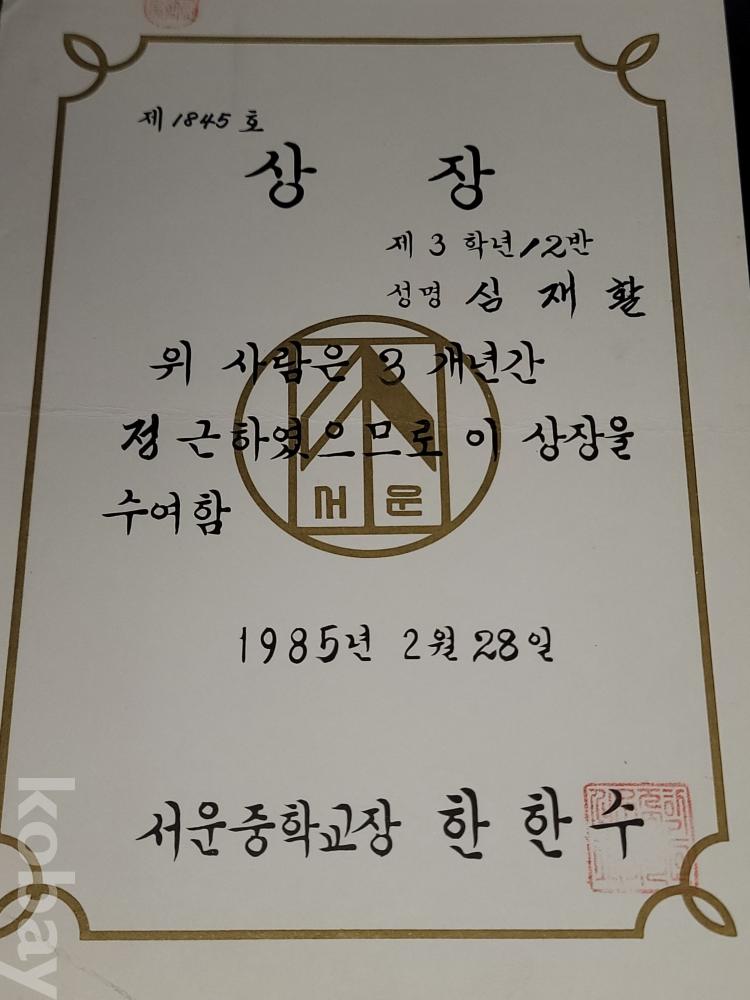 제 1845 호
상 장
제 3 학년 12반
성명 심 재 활
위 사람은 3 개년간
정근하였으므로 이 상장을
수여함
서운
1985년 2월 28일
서운중학교장 한 한 수
kobay